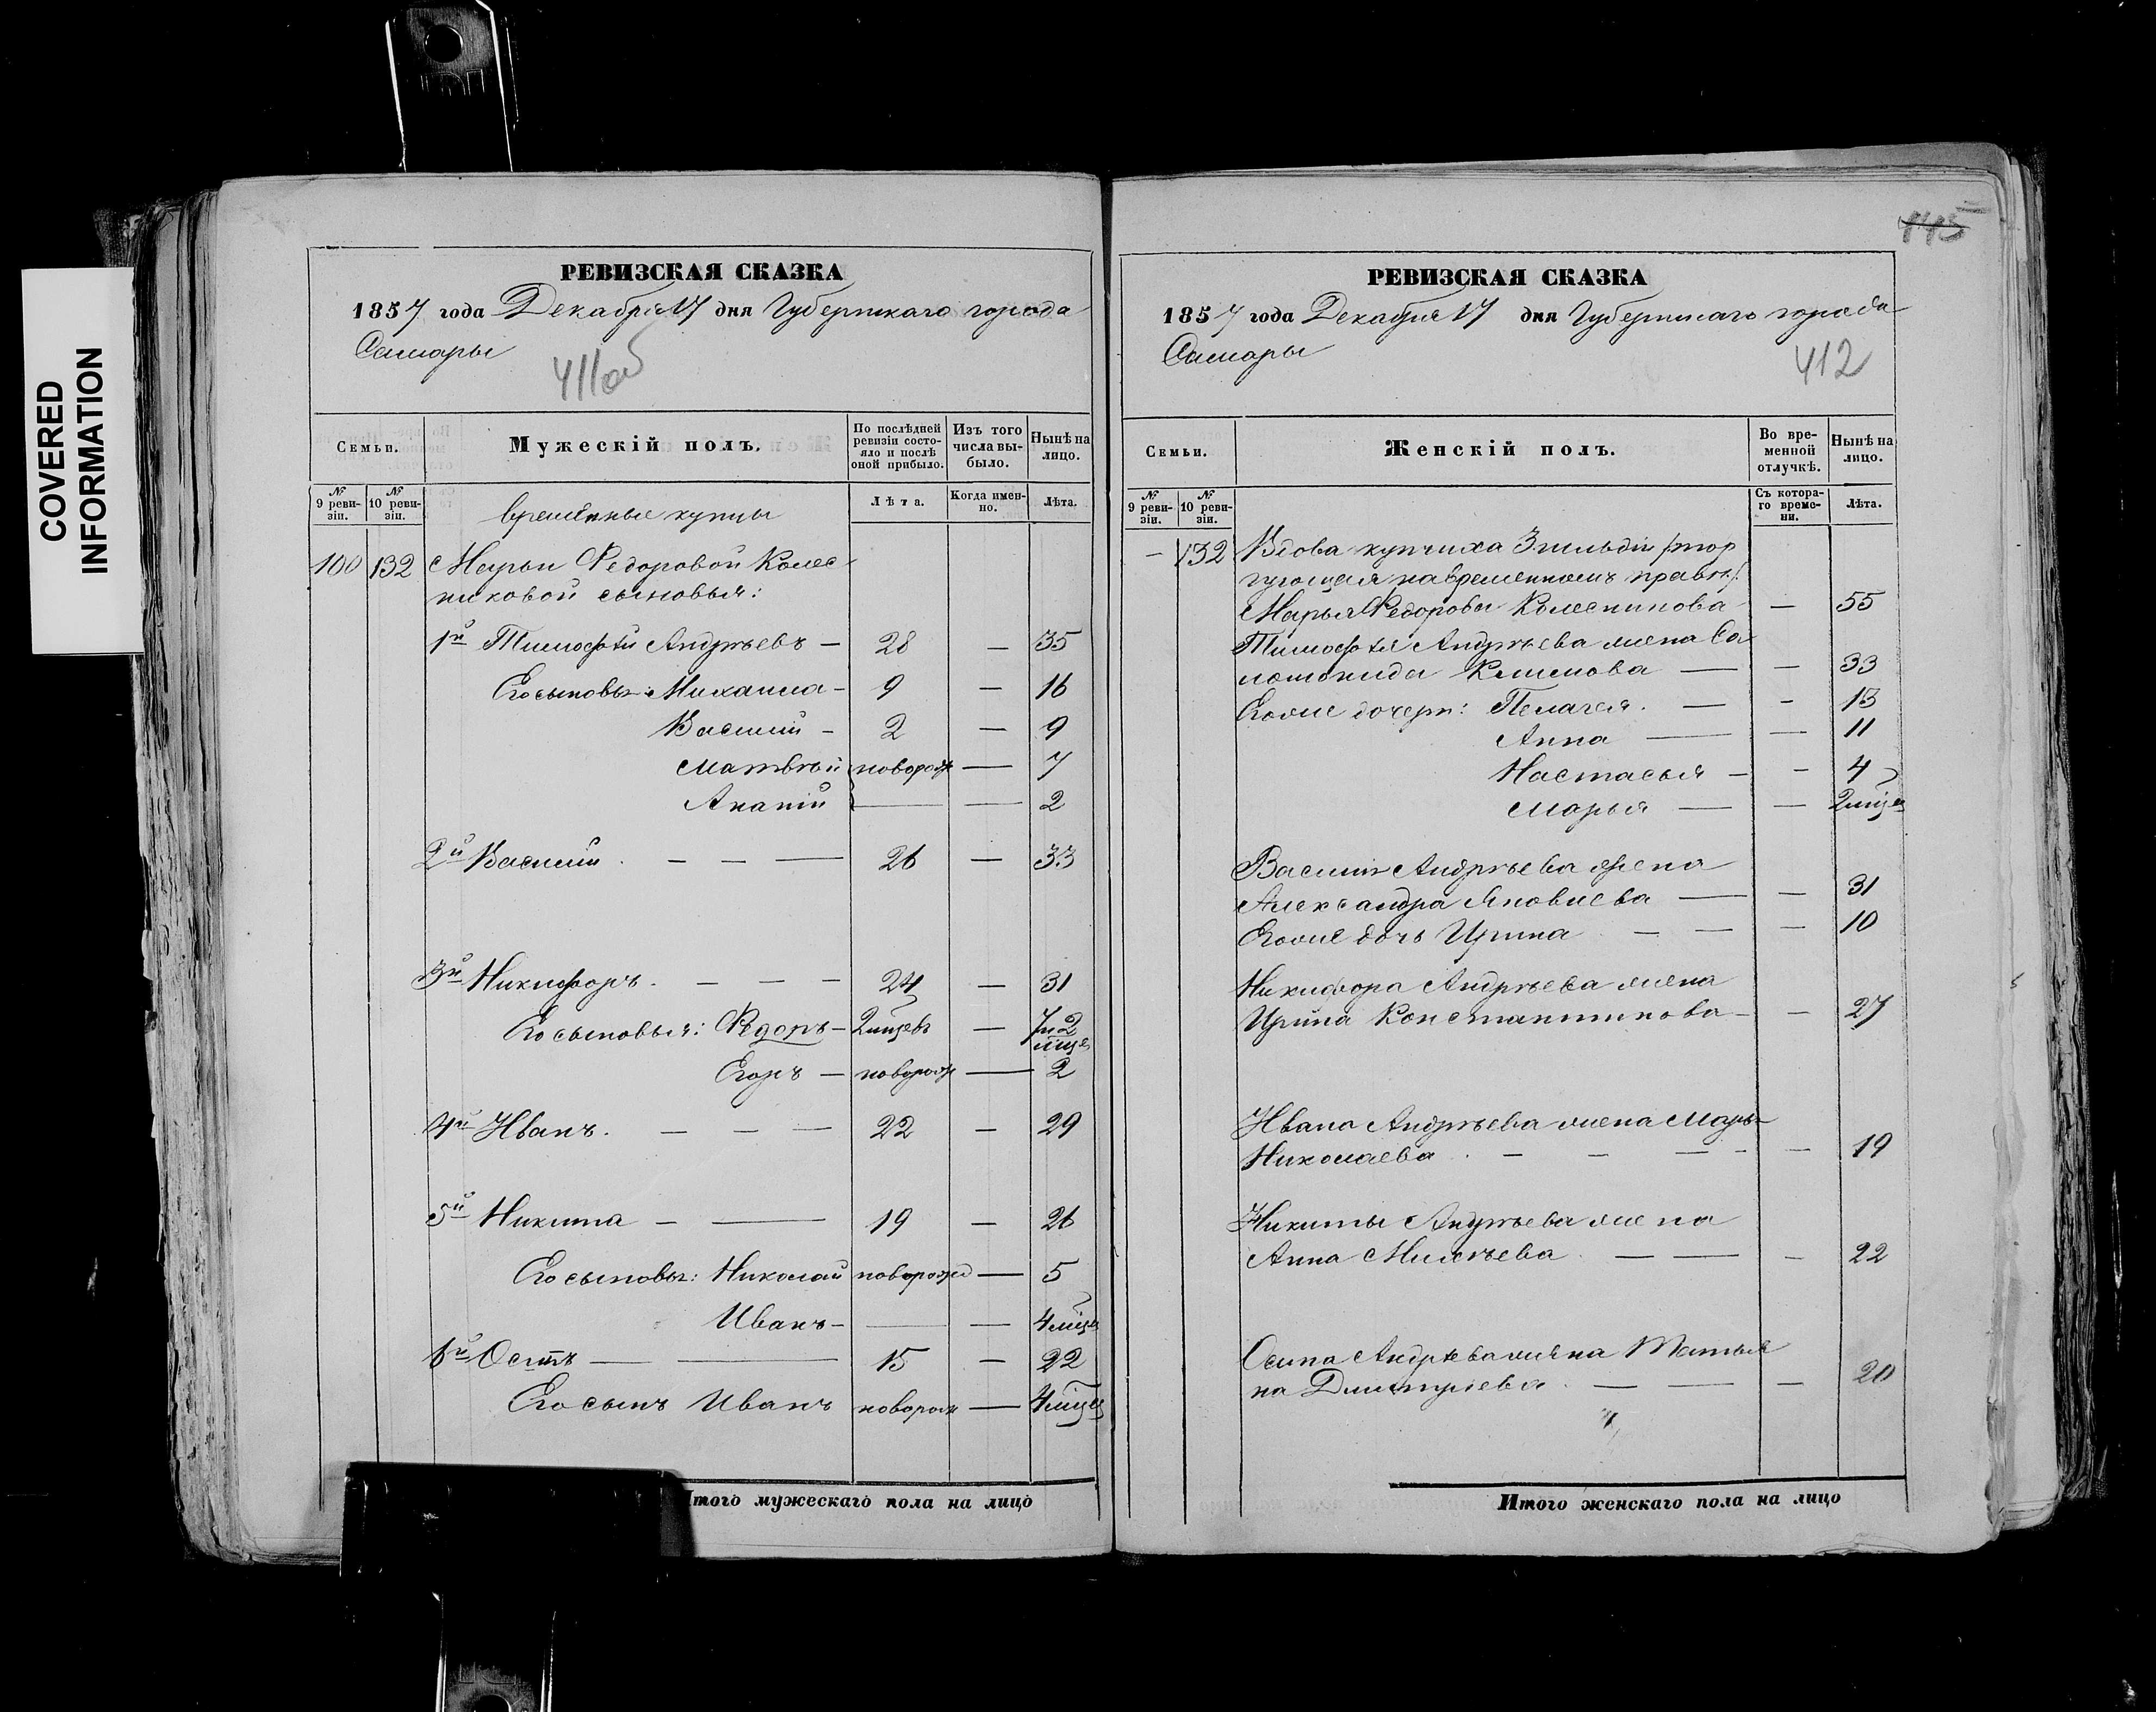 COVERED
INFORMATION
РЕВИЗСКАЯ СКАЗКА
1857 года Декабря 17 дня Губернскаго города
Самары
411об
Семьи.
Мужескій полъ.
По послѣдней ревизіи состояло и послѣ оной прибыло.
Изъ того числа выбыло.
Нынѣ на лицо.
№ 9 ревизіи.
№ 10 ревизіи.
Лѣта.
Когда именно.
Лѣта.
временные купцы
100 132 Марьи Федоровой Колес
никовой сыновья:
1й Тимофѣй Андрѣевъ — 28 — 35
Его сыновья: Михаила — 9 — 16
Василій — 2 — 9
Матвѣй новорож — 7
Ананій — — 2
2й Василій — — — 26 — 33
3й Никифоръ — — — 24 — 31
Его сыновья: Ѳедоръ — 2 мцевъ — 7 и 2
мце
Егоръ — новорож — 2
4й Иванъ — — — 22 — 29
5й Никита — — 19 — 26
Его сыновья: Николай новорожд — 5
Иванъ — — — 4 мцв
6й Осипъ — — 15 — 22
Его сынъ Иванъ новорож — 4 мцв
Итого мужескаго пола на лицо
445
РЕВИЗСКАЯ СКАЗКА
1857 года Декабря 17 дня Губернскаго города
Самары
412
Семьи.
Женскій полъ.
Во временной отлучкѣ.
Нынѣ на лицо.
№ 9 ревизіи.
№ 10 ревизіи.
Съ котораго времени.
Лѣта.
— 132 Вдова купчиха 3 гильдіи /тор
гующая на временномъ правѣ/
Марья Федорова Колесникова — 55
Тимофѣя Андрѣева жена Со
ломонида Климова — — 33
Коихъ дочери: Пелагея. — — 13
Анна — — 11
Настасья — — 4
Марья — — 2 мцв
Василія Андрѣева жена
Александра Яковлева — — 31
Коихъ дочь Ирина — — — 10
Никифора Андрѣева жена
Ирина Константинова — — 27
Ивана Андрѣева жена Марья
Николаева — — — — 19
Никиты Андрѣева жена
Анна — — — 22
Осипа Андрѣева жена Татья
на Дмитріева — — — 20
Итого женскаго пола на лицо